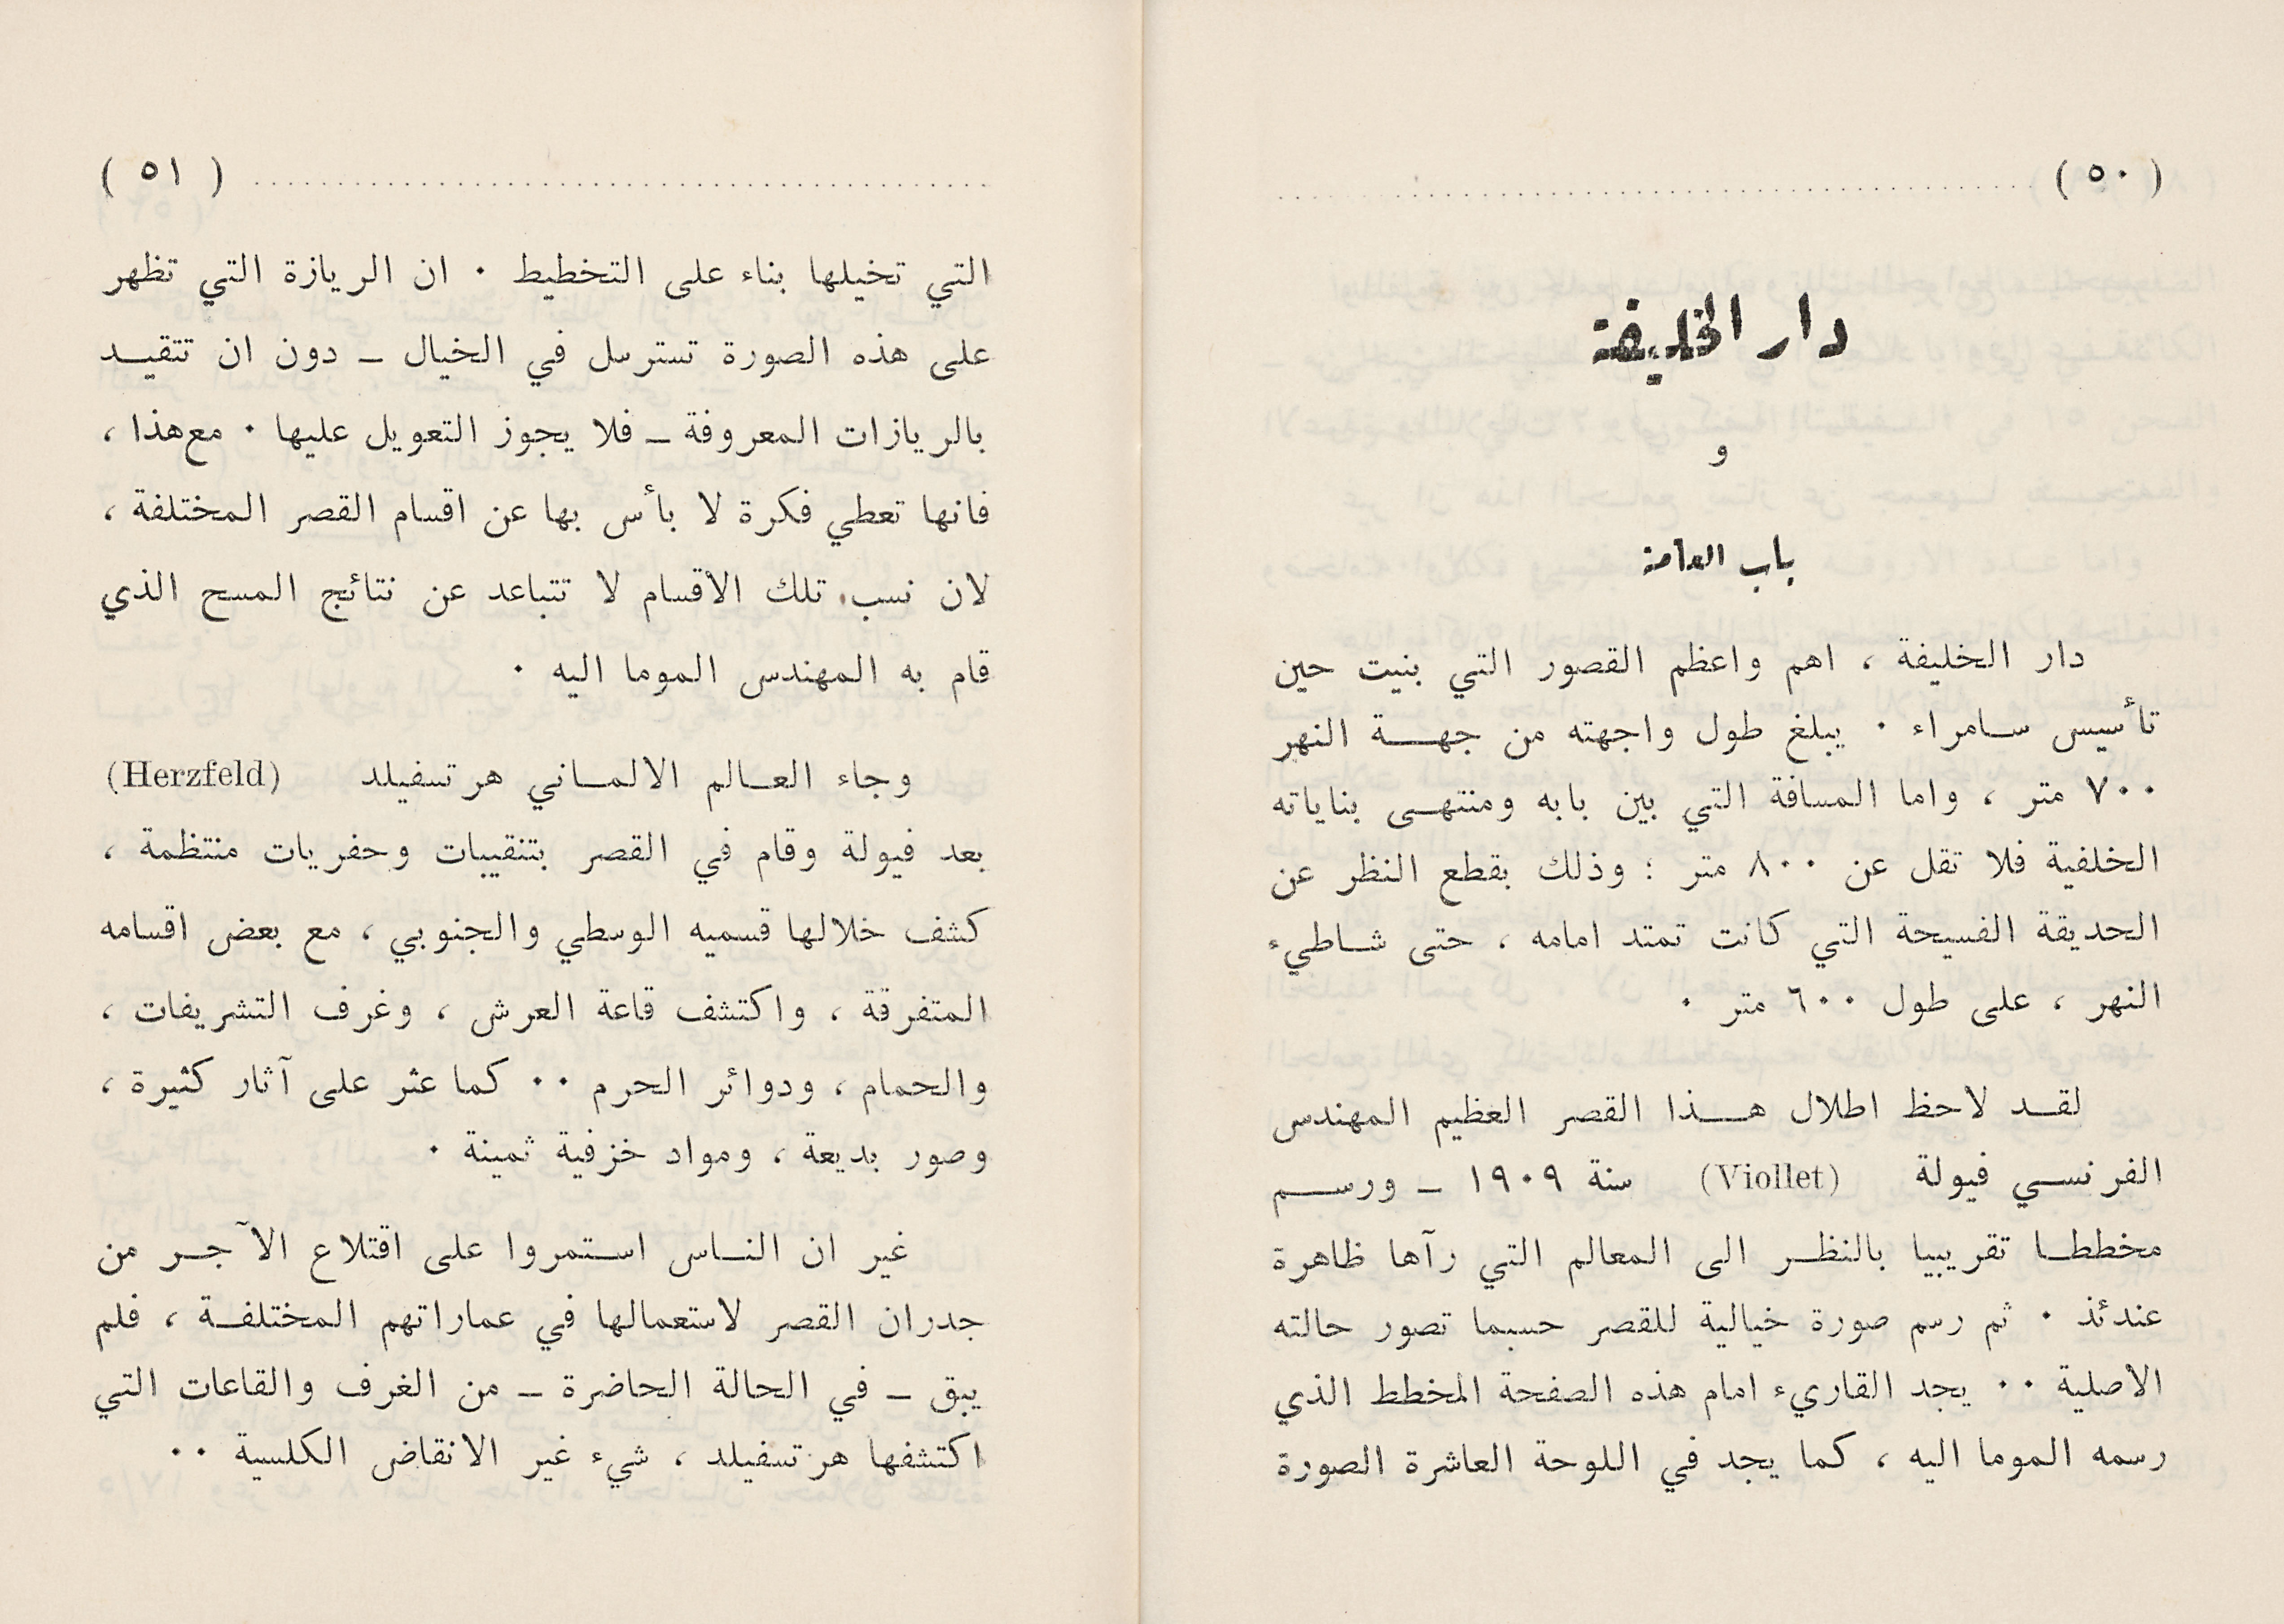 ( ٥٠ )
دار الخليفة
و
باب العامة
دار الخليفة ، اهم واعظم القصور التي بنيت حين
تأسيس سامراء ٠ يبلغ طول واجهته من جهة النهر
٧٠٠ متر ، واما المسافة التي بين بابه ومنتهى بناياته
الخلفية فلا تقل عن ٨٠٠ متر ؛ وذلك بقطع النظر عن
الحديقة الفسيحة التي كانت تمتد امامه ، حتى شاطيء
النهر ، على طول ٦٠٠ متر ٠
لقد لاحظ اطلال هذا القصر العظيم المهندس
الفرنسي فيولة (Viollet) سنة ١٩٠٩ ـ ورسم
مخططا تقريبيا بالنظر الى المعالم التي رآها ظاهرة
عندئذ ٠ ثم رسم صورة خيالية للقصر حسبما تصور حالته
الاصلية ٠٠ يجد القاريء امام هذه الصفحة المخطط الذي
رسمه الموما اليه ، كما يجد في اللوحة العاشرة الصورة
( ٥١ )
التي تخيلها بناء على التخطيط ٠ ان الريازة التي تظهر
على هذه الصورة تسترسل في الخيال ـ دون ان تتقيد
بالريازات المعروفة ـ فلا يجوز التعويل عليها ٠ مع هذا ،
فانها تعطي فكرة لا بأس بها عن اقسام القصر المختلفة ،
لان نسب تلك الاقسام لا تتباعد عن نتائج المسح الذي
قام به المهندس الموما اليه ٠
وجاء العالم الالماني هرتسفيلد (Herzfeld)
بعد فيولة وقام في القصر بتنقيبات وحفريات منتظمة ،
كشف خلالها قسميه الوسطي والجنوبي ، مع بعض اقسامه
المتفرقة ، واكتشف قاعة العرش ، وغرف التشريفات ،
والحمام ، ودوائر الحرم ٠٠ كما عثر على آثار كثيرة ،
وصور بديعة ، ومواد خزفية ثمينة ٠
غير ان الناس استمروا على اقتلاع الآجر من
جدران القصر لاستعمالها في عماراتهم المختلفة ، فلم
يبق ـ في الحالة الحاضرة ـ من الغرف والقاعات التي
اكتشفها هرتسفيلد ، شيء غير الانقاض الكلسية ٠٠